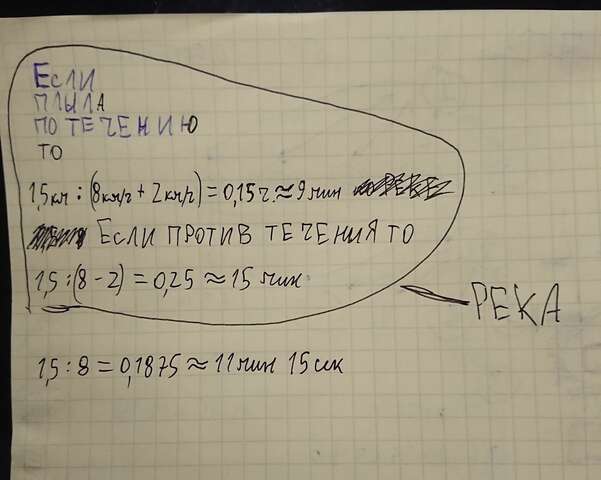 Если
плыла
по течению
то
1,5 км : (8км/ч + 2км/ч) = 0,15 ч. ≈ 9 мин
Если против течения то
1,5 : (8 - 2) = 0,25 ≈ 15 мин
РЕКА
1,5 : 8 = 0,1875 ≈ 11 мин 15 сек